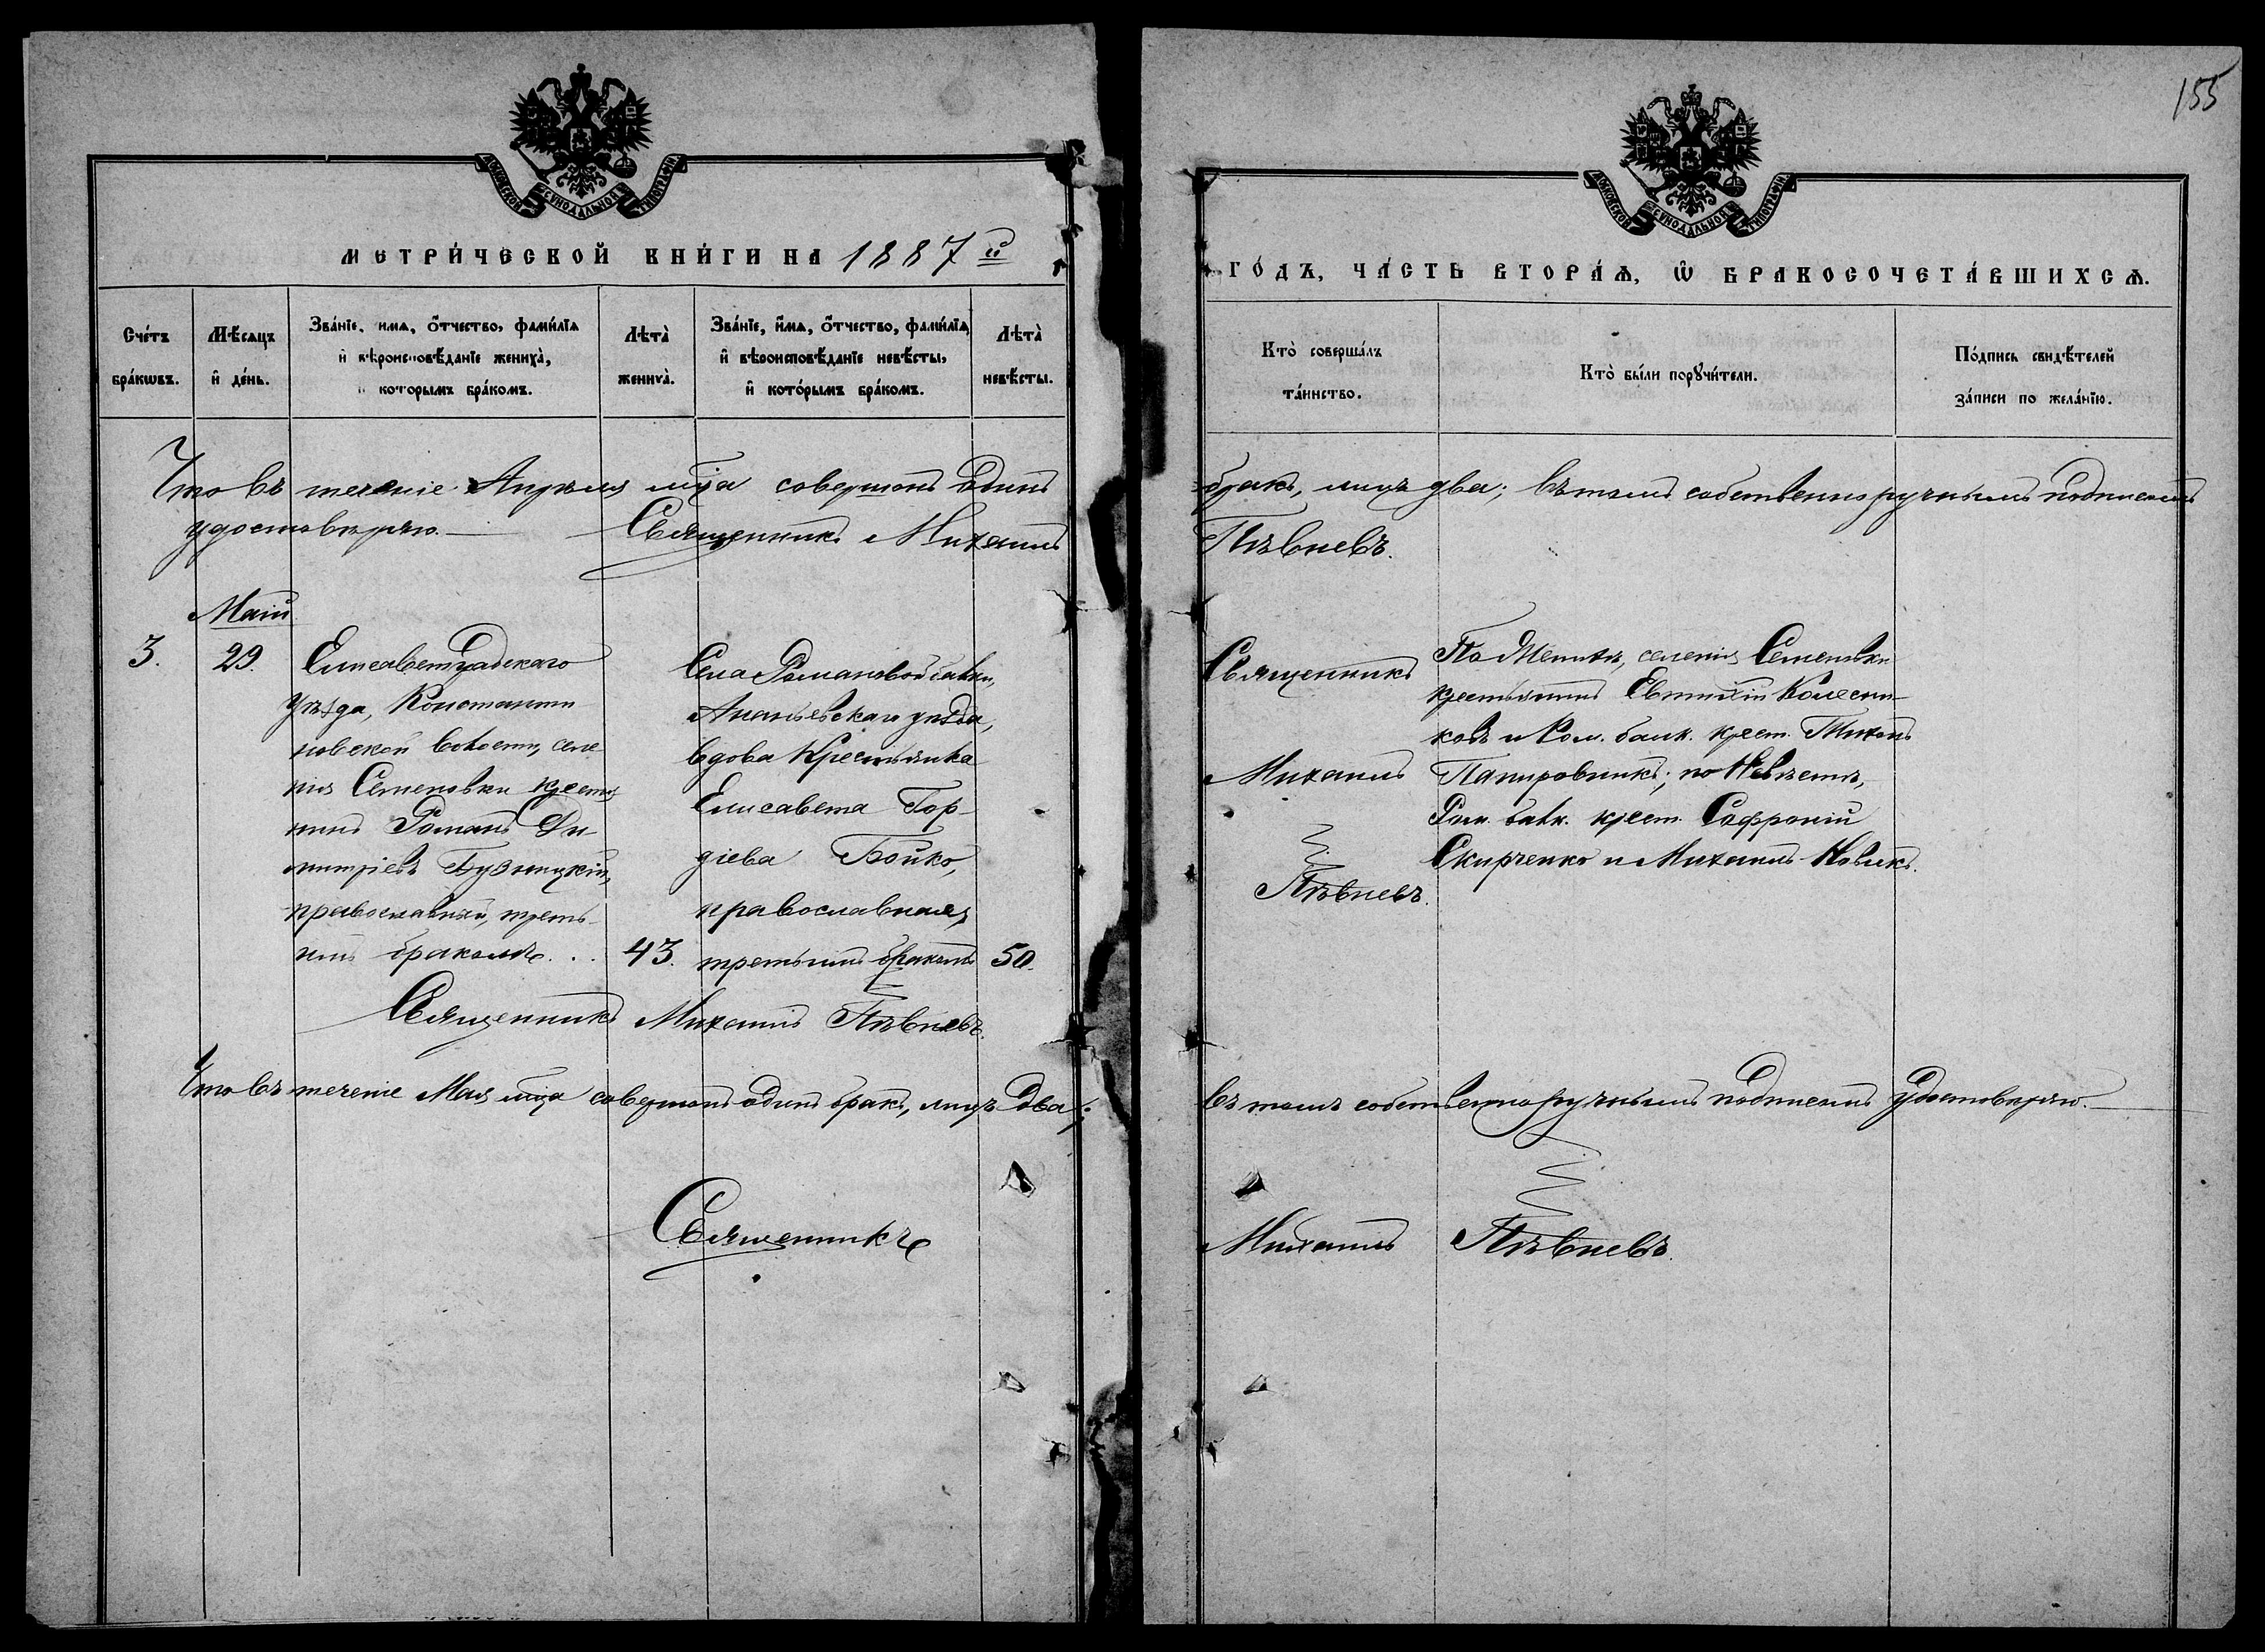 155
МОСКОВСКОЙ СѴНОДАЛЬНОЙ ТИПОГРАФІИ
МОСКОВСКОЙ СѴНОДАЛЬНОЙ ТИПОГРАФІИ
МЕТРИ́ЧЕСКОЙ КНИ́ГИ НА 1887й
ГО́ДЪ, ЧА́СТЬ ВТОРА́Ѧ, Ѡ БРАКОСОЧЕТА́ВШИХСѦ.
Сче́тъ бра́кѡвъ.
Мѣ́сѧцъ и҆ де́нь.
Зва́нїе, и҆́мѧ, ѻ҆́тчество, фами́лїѧ и҆ вѣроисповѣ́данїе жениха̀, и҆ кото́рымъ бра́комъ.
Лѣта̀ жениха̀.
Зва́нїе, и҆́мѧ, ѻ҆́тчество, фами́лїѧ и҆ вѣроисповѣ́данїе невѣ́сты, и҆ кото́рымъ бра́комъ.
Лѣта̀ невѣ́сты.
Кто̀ соверша́лъ та́инство.
Кто̀ бы́ли порꙋчи́тели.
По́дпись свидѣ́телей за́писи по жела́нїю.
Что въ теченіе Апрѣля мца совершонъ одинъ
бракъ, лицъ два; въ томъ собственноручнымъ подписомъ
удостовѣряю. Священникъ Михаилъ
Пѣвневъ.
Маій
3. 29.
Елисаветградскаго
уѣзда, Константи
новской волости, селе
нія Семеновки крестья
нинъ Романъ Ди
митріевъ
православный, треть
имъ бракомъ... 43.
Села Романовой балки,
Ананьевскаго уѣзда,
вдова Крестьянка
Елисавета Гор-
діева Бойко,
православная,
третьимъ бракомъ 50.
Священникъ
Михаилъ
Пѣвневъ.
По Женихѣ, селенія Семеновки
крестьянинъ Евтихій Колесни-
ковъ и Ром. балк. крест. Тихонъ
Папировникъ; по Невѣстѣ,
Ром. балк. крест. Софроній
Скирченко и Михаилъ Новикъ.
Священникъ Михаилъ Пѣвневъ.
Что въ теченіе Мая мца совершонъ одинъ бракъ, лицъ два;
въ томъ собственноручнымъ подписомъ удостовѣряю.
Священникъ
Михаилъ Пѣвневъ.